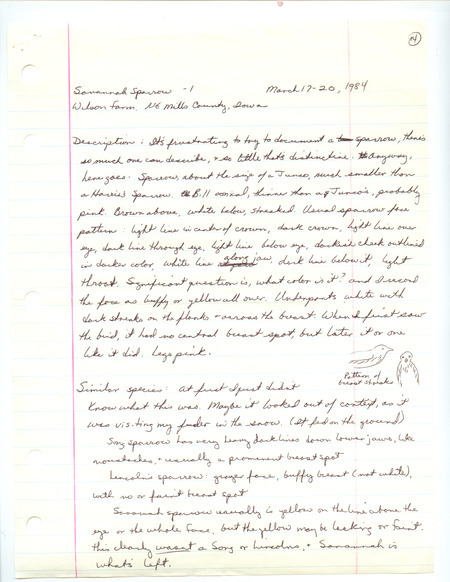 4
Savannah Sparrow -1 March 17-20, 1984
Wilson Farm, NE Mills County, Iowa
Description: It's frustrating to try to document a sparrow, there's
so much one can describe, & so little that's distinctive. Anyway,
here goes: Sparrow, about the size of a Junco, much smaller than
a Harris's Sparrow. Bill conical, thinner than a Junco's, probably
pink. Brown above, white below, streaked. Usual sparrow face
pattern: light line in center of crown, dark crown, light line over
eye, dark line through eye, light line below eye, darkish cheek outlined
in darker color, white line along jaw, dark line below it, light
throat. Significant question is, what color is it? and I record
the face as buffy or yellow all over. Underparts white with
dark streaks on the flanks & across the breast. When I first saw
the bird, it had no central breast spot, but later it or one
like it did. Legs pink.
Pattern of
breast streaks
Similar species: At first I just didn't
know what this was. Maybe it looked out of context, as it
was visiting my feeder in the snow. (It fed on the ground)
Song sparrow has very heavy dark lines down lower jaws, like
moustaches, & usually a prominent breast spot
Lincoln's sparrow: grayer face, buffy breast (not white),
with no or faint breast spot
Savannah sparrow usually is yellow on the line above the
eye or the whole face, but the yellow may be lacking or faint.
This clearly wasn't a Song or Lincolns, & Savannah is
what's left.